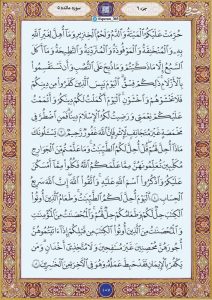 جزء ٦
سوره مائده ٥
حُرِّمَتْ عَلَيْكُمُ الْمَيْتَةُ وَالدَّمُ وَلَحْمُ الْخِنزِيرِ وَمَا أُهِلَّ لِغَيْرِ اللَّهِ
بِهِ وَالْمُنْخَنِقَةُ وَالْمَوْقُوذَةُ وَالْمُتَرَدِّيَةُ وَالنَّطِيحَةُ وَمَا أَكَلَ
السَّبُعُ إِلَّا مَا ذَكَّيْتُمْ وَمَا ذُبِحَ عَلَى النُّصُبِ وَأَن تَسْتَقْسِمُوا
بِالْأَزْلَٰمِ ذَٰلِكُمْ فِسْقٌ الْيَوْمَ يَئِسَ الَّذِينَ كَفَرُوا مِن دِينِكُمْ
فَلَا تَخْشَوْهُمْ وَاخْشَوْنِ الْيَوْمَ أَكْمَلْتُ لَكُمْ دِينَكُمْ وَأَتْمَمْتُ
عَلَيْكُمْ نِعْمَتِي وَرَضِيتُ لَكُمُ الْإِسْلَٰمَ دِينًا فَمَنِ اضْطُرَّ فِي
مَخْمَصَةٍ غَيْرَ مُتَجَانِفٍ لِّإِثْمٍ فَإِنَّ اللَّهَ غَفُورٌ رَّحِيمٌ ٣ يَسْـَٔلُونَكَ
مَاذَا أُحِلَّ لَهُمْ قُلْ أُحِلَّ لَكُمُ الطَّيِّبَٰتُ وَمَا عَلَّمْتُم مِّنَ الْجَوَارِحِ
مُكَلِّبِينَ تُعَلِّمُونَهُنَّ مِمَّا عَلَّمَكُمُ اللَّهُ فَكُلُوا مِمَّا أَمْسَكْنَ
عَلَيْكُمْ وَاذْكُرُوا اسْمَ اللَّهِ عَلَيْهِ وَاتَّقُوا اللَّهَ إِنَّ اللَّهَ سَرِيعُ
الْحِسَابِ ٤ الْيَوْمَ أُحِلَّ لَكُمُ الطَّيِّبَٰتُ وَطَعَامُ الَّذِينَ أُوتُوا
الْكِتَٰبَ حِلٌّ لَّكُمْ وَطَعَامُكُمْ حِلٌّ لَّهُمْ وَالْمُحْصَنَٰتُ مِنَ الْمُؤْمِنَٰتِ
وَالْمُحْصَنَٰتُ مِنَ الَّذِينَ أُوتُوا الْكِتَٰبَ مِن قَبْلِكُمْ إِذَا ءَاتَيْتُمُوهُنَّ
أُجُورَهُنَّ مُحْصِنِينَ غَيْرَ مُسَٰفِحِينَ وَلَا مُتَّخِذِي أَخْدَانٍ وَمَن
يَكْفُرْ بِالْإِيمَٰنِ فَقَدْ حَبِطَ عَمَلُهُ وَهُوَ فِي الْءَاخِرَةِ مِنَ الْخَٰسِرِينَ ٥
١٠٧